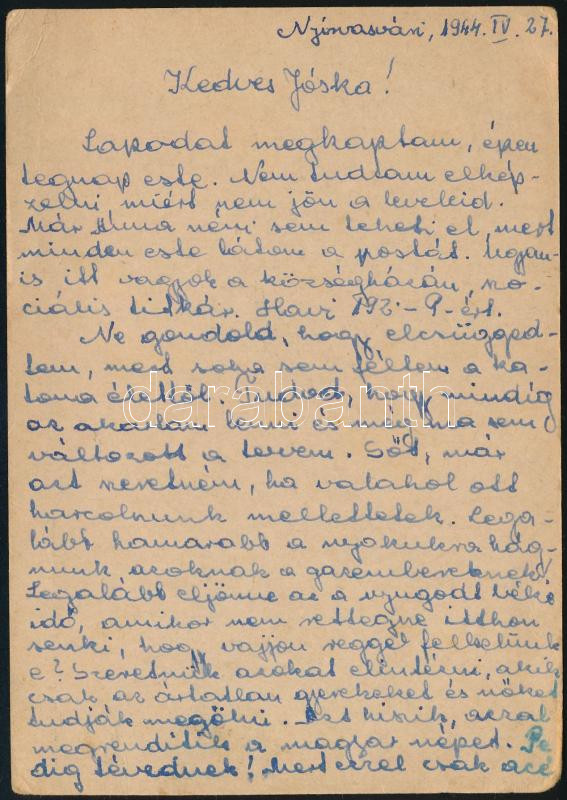 Nyírvasvári, 1944. IV. 27.
Kedves Jóska!
Lapodat megkaptam, épen
tegnap este. Nem tudtam elkép-
zelni miért nem jön a leveleid.
Már Anna néni sem teheti el, mert
minden este látom a postát. Ugyan-
is itt vagyok a községházán, szo-
ciális titkár. Havi 192.- P-ért.
Ne gondold, hogy elcsügged-
tem, mert soha sem féltem a ka-
tona élettől. Tudod, hogy mindig
az akartam lenni és még ma sem
változott a tervem. Sőt, már
azt szeretném, ha valahol ott
harcolnunk mellettetek. Lega-
lább hamarabb a nyakukra hág-
nunk azoknak a gazembereknek.
Legalább eljönne az a nyugodt béke
idő, amikor nem rettegne itthon
senki, hogy vajjon reggel felkelünk
e? Szeretnük azokat elintézni, akik
csak az ártatlan gyerekeket és nőket
tudják megölni. Azt hiszik, azzal
megrendítik a magyar népet. Pe-
dig tévednek! Mert ezzel csak acé
darabanth